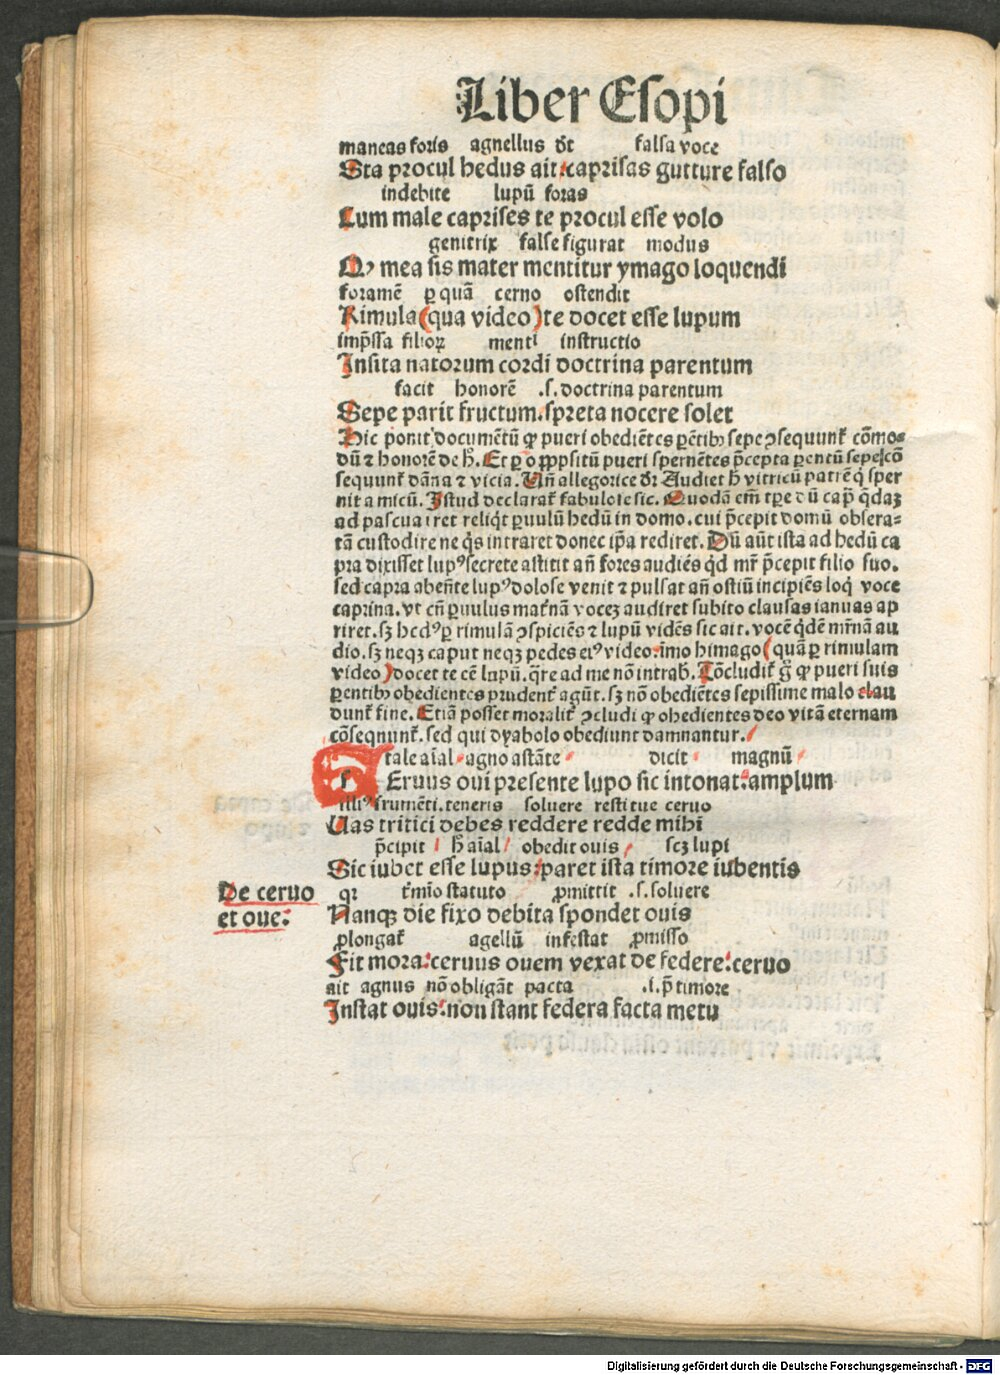 Liber Esopi
maneas foris agnellus dr̄t falsa voce
Sta procul hedus ait: caprisas gutture falso
indebite lupū foras
Cum male caprises te procul esse volo
genitrix false figurat modus
Qꝫ mea sis mater mentitur ymago loquendi
foramē ꝑ quā cerno ostendit
Rimula (qua video) te docet esse lupum
imp̄ssa filioꝝ menti instructio
Insita natorum cordi doctrina parentum
facit honorē .s. doctrina parentum
Sepe parit fructum. spreta nocere solet
Hic ponit documētū ꝙ pueri obediētes pētibꝫ sepe ↄsequunt̄ cōmo⸗
dū ⁊ honorē de h̄. Et ꝑ oppositū pueri spernētes p̄cepta ꝑentū sepe cō
sequunt̄ dāna ⁊ vicia. Uñ allegorice dr̄ Audiet h̄ vitricū patrē q̇ sper
nit amicū. Istud declarat̄ fabulose sic. Quodā em̄ tꝑe cū cap̄ q̇daꝫ
ad pascua iret reliq̇t ꝑuulū hedū in domo. cui p̄cepit domū obsera⸗
tā custodire ne q̇s intraret donec ip̄a rediret. Dū aūt ista ad hedū ca
pra dixisset lupꝰ secrete astitit añ fores audiēs q̇d mr̄ p̄cepit filio suo.
sed capra abeñte lupꝰ dolose venit ⁊ pulsat añ ostiū incipiēs loq̇ voce
caprina. vt cñ ꝑuulus mat̄nā voceꝫ audiret subito clausas ianuas ap
riret. sꝫ hedꝰ ꝑ rimulā ↄspiciēs ⁊ lupū vidēs sic ait. vocē q̇dē mr̄nā au
dio. sꝫ neqꝫ caput neqꝫ pedes eiꝰ video. īmo himago (quā ꝑ rimulam
video) docet te eē lupū. q̄re ad me nō intrab̄. Cōcludit̄ g̊ ꝙ pueri suis
ꝑentibꝫ obedientes prudent̄ agūt. sꝫ nō obediētes sepissime malo clau
dunt̄ fine. Etiā posset moralit̄ ↄcludi ꝙ obedientes deo vitā eternam
cōseqnunt̄. sed qui dyabolo obediunt damnantur.
tale aīal agno astāte dicit magnū
Eruus oui presente lupo sic intonat: amplum
illiꝰ frumēti. teneris soluere restitue ceruo
Uas tritici debes reddere redde mihi
p̄cipit h̄ aīal obedit ouis scꝫ lupi
Sic iubet esse lupus: paret ista timore iubentis
De ceruo
et oue:
qr t̄mīo statuto ꝓmittit .s. soluere
Nanqꝫ die fixo debita spondet ouis
ꝓlongat̄ agellū infestat ꝓmisso
Fit mora: ceruus ouem vexat de federe: ceruo
ait agnus nō obligāt pacta .i. p̄ timore
Instat ouis: non stant federa facta metu
Digitalisierung gefördert durch die Deutsche Forschungsgemeinschaft - DFG